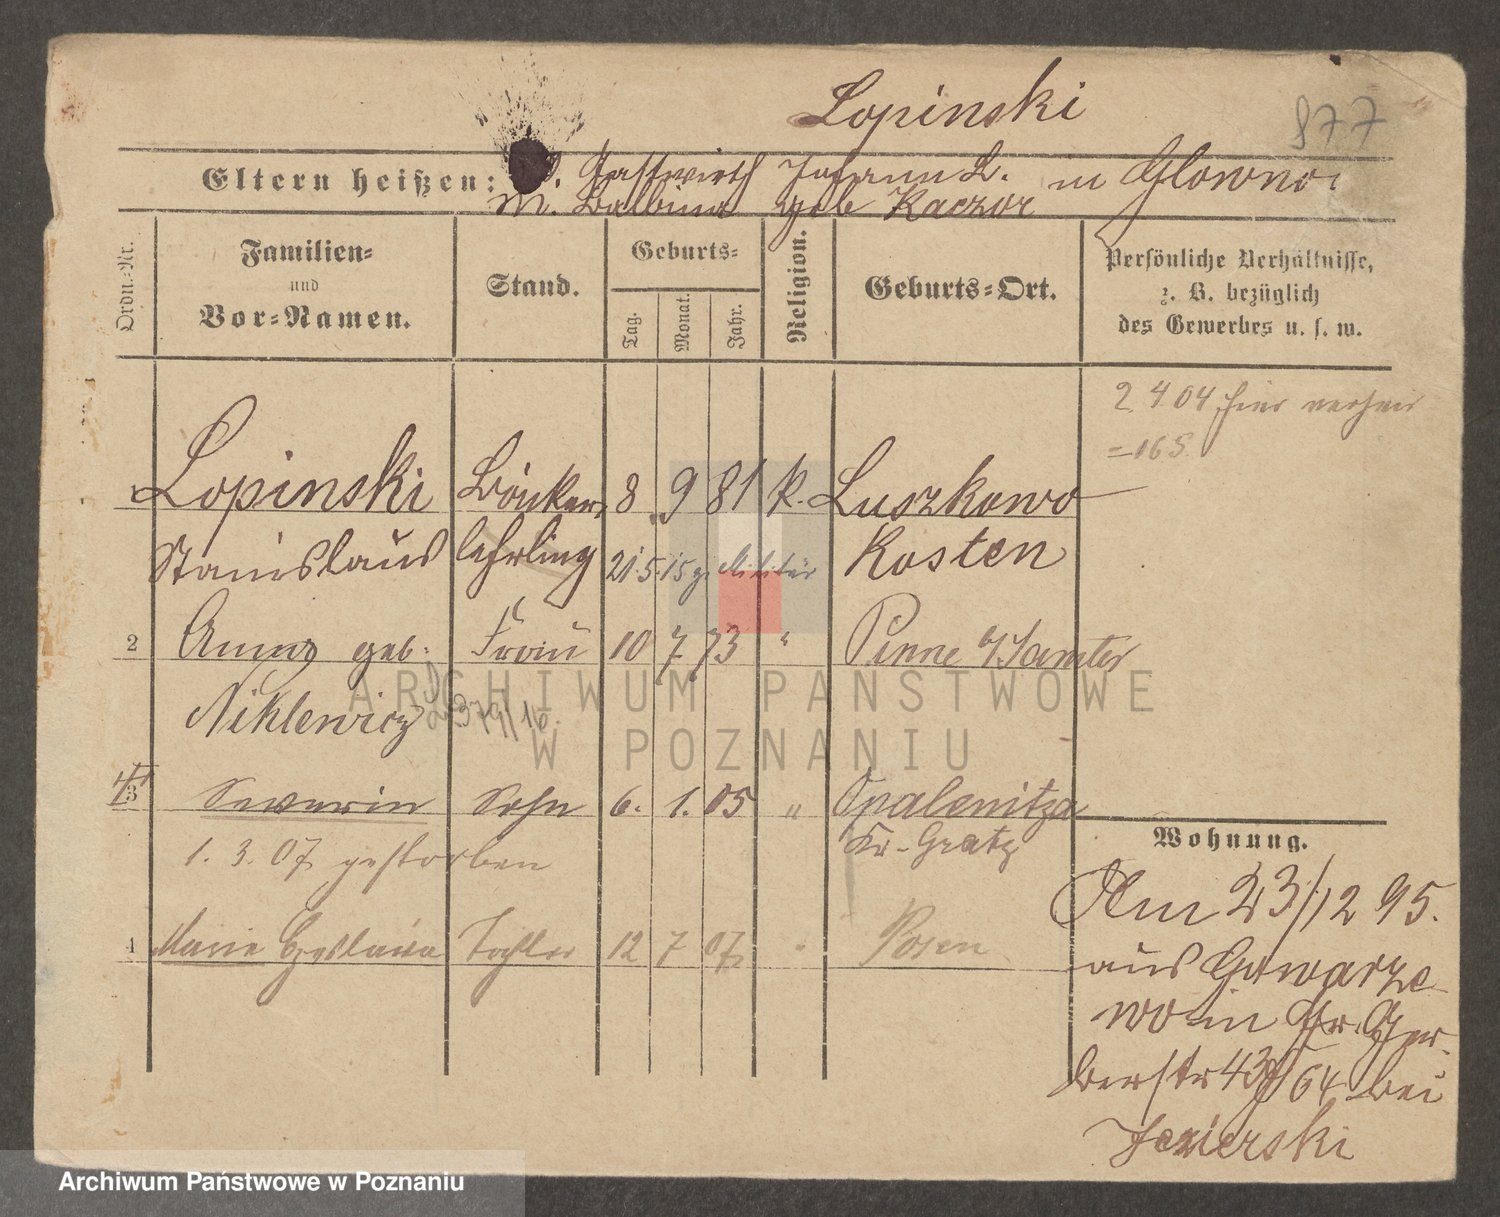 Lopinski
877
Eltern heißen: V. Gastwirth Johann L. in Glowno
M. Balbina geb Kaczor
Ordn.-Nr.
Familien-
und
Vor-Namen.
Stand.
Geburts-
Tag.
Monat.
Jahr.
Religion.
Geburts-Ort.
Persönliche Verhältnisse,
z. B. bezüglich
des Gewerbes u. s. w.
2 4 04 hier verheir
=165
Lopinski Bäcker 8 9 81 k. Luszkowo
Stanislaus lehrling 21.5.15 z. Militär Kosten
2 Anna geb. Frau 10 7 73 " Pinne b/Samter
Niklewicz 379/16.
3 Severin Sohn 6. 1. 05 " Opalenitza
1. 3. 07 gestorben Kr. Grätz
4 Marie Czeslawa Tochter 12 7 07 " Posen
Wohnung.
Am 23/12 95.
aus Gowarze
wo in Gr. Ger-
berstr 43 64 bei
Jezierski
ARCHIWUM PAŃSTWOWE
W POZNANIU
Archiwum Państwowe w Poznaniu